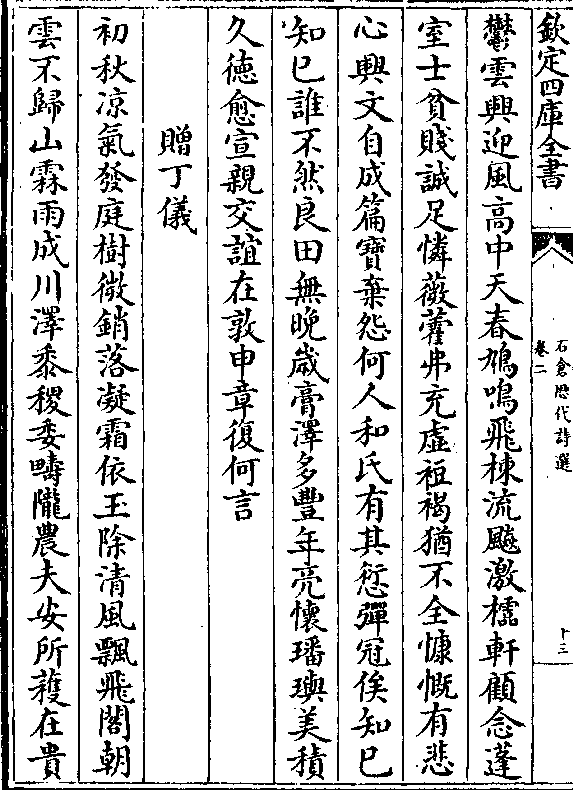 欽定四庫全書
石倉歷代詩選
卷二
十三
鬱雲興迎風高中天春鳩鳴飛棟流飈激櫺軒顧念蓬
室士貧賤誠足憐薇藿弗充虛裋褐猶不全慷慨有悲
心興文自成篇寶棄怨何人和氏有其愆彈冠俟知已
知已誰不然良田無晚歲膏澤多豐年亮懷璠璵美積
久德愈宣親交誼在敦申章復何言
贈丁儀
初秋涼氣發庭樹微銷落凝霜依玉除清風飄飛閣朝
雲不歸山霖雨成川澤黍稷委疇隴農夫安所穫在貴